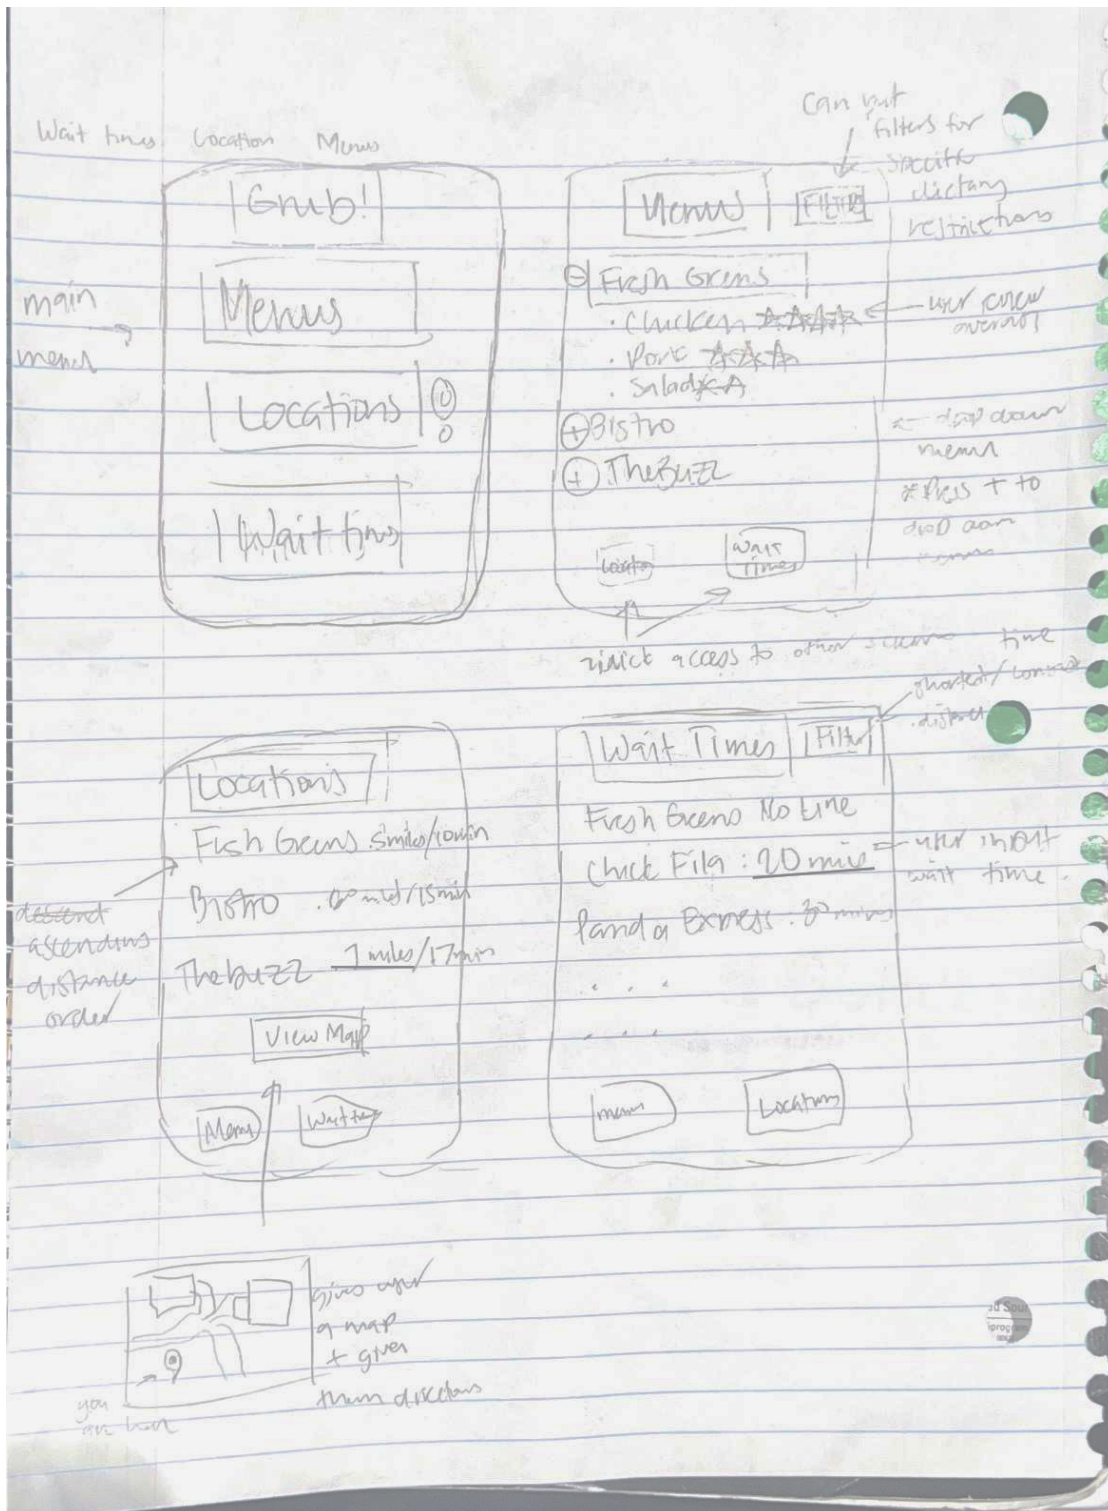 Wait times Location Menus
main
menu
Grub!
Menus
Locations
Wait tims
Can put
filters for
specific
dietary
restrictions
Menus
FILTER
Fresh Greens
· Chicken
· Pork
· Salad
Bistro
The Buzz
user review
average
drop down
menu
* Press + to
drop down
Wait
Times
access to other
time
shortest/
distance
Locations
Fish Greens .5miles/10min
Bistro
/15min
The buzz
1 miles/17min
View Map
Menu
ascending
distance
order
descend
Wait Times
Filter
Fresh Greens No Line
Chick Fila : 20 mins
Panda Express : 30 mins
. . .
. . .
user input
wait time.
menus
Locations
gives user
a map
+ gives
them directions
you
are here